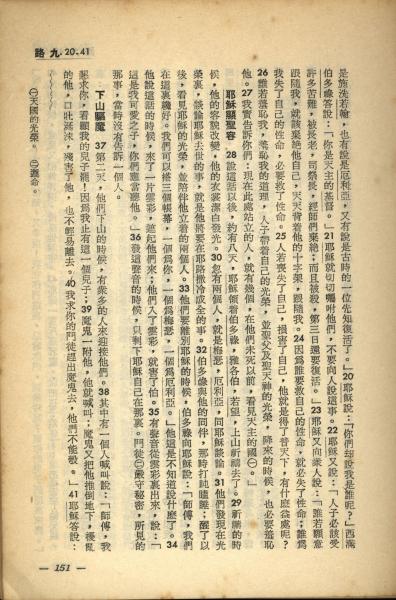 路 九.20-.41
是施洗若翰，也有說是厄利亞，又有說是古時的一位先知復活了。」20耶穌說：「你們却說我是誰呢？」西滿
伯多祿答說：「你是天主的基督。」21耶穌就切切囑咐他們，不要向人說這事。22耶穌又說：「人子必該受
許多苦難，被長老，司祭長，經師們棄絕；而且被殺，第三日還要復活。」23耶穌又向衆人說：「誰若願意
跟隨我，就該棄絕他自己，天天背着他的十字架，跟隨我。24因爲誰要救自己的性命，就必失了性命；誰爲
我失了自己的性命，必要救了性命。25人若喪失了自己，損害了自己，他就是得了普天下，有什麼益處呢？
26誰若羞恥我，羞恥我的道理，人子帶着自己的光榮，並聖父及聖天神的光榮，降來的時候，也必要羞恥
他。27我實告訴你們：現在此處站立的人，就有幾個，在他們未死以前，看見天主的國㊀。」
耶穌顯聖容 28說這話以後，約有八天，耶穌領着伯多祿，雅各伯，若望，上山祈禱去了。29祈禱的時
候，他的容貌改變，他的衣裳潔白發光。30忽有兩個人，就是梅瑟，厄利亞，同耶穌談論。31他們發現在光
榮裏，談論耶穌去世的事，就是他將要在耶路撒冷成全的事。32伯多祿與他的同伴，那時打盹瞌睡；醒了以
後，看見耶穌的光榮，並陪伴他立着的兩個人。33他們要離別耶穌的時候，伯多祿向耶穌說：「師傅，我們
在這裏纔好。我們可以搭三個帳幕，一個爲你，一個爲梅瑟，一個爲厄利亞。」他還是不知道說什麼了。34
他說這話的時候，來了一片雲彩，遮起他們來；他們入了雲彩，就害了怕。35有聲音從雲彩裏出來，說：「
這是我可愛之子，你們應當聽他。」36發這聲音的時候，只剩下耶穌自己在那裏。門徒㊁嚴守秘密，所見的
那事，當時沒有告訴一個人。
下山驅魔 37第二天，他們下山的時候，有衆多的人來迎接他們。38其中有一個人喊叫說：「師傅，我
懇求你，看顧我的兒子罷！因爲我止有這一個兒子；39魔鬼一附他，他就喊叫；魔鬼又把他推倒地下，擾亂
的他，口吐涎沫，殘害了他，也不輕易離去。40我求你的門徒趕出魔鬼去，他們不能彀。」41耶穌答說：
㊀天國的光榮。 ㊁遵命。
— 151 —